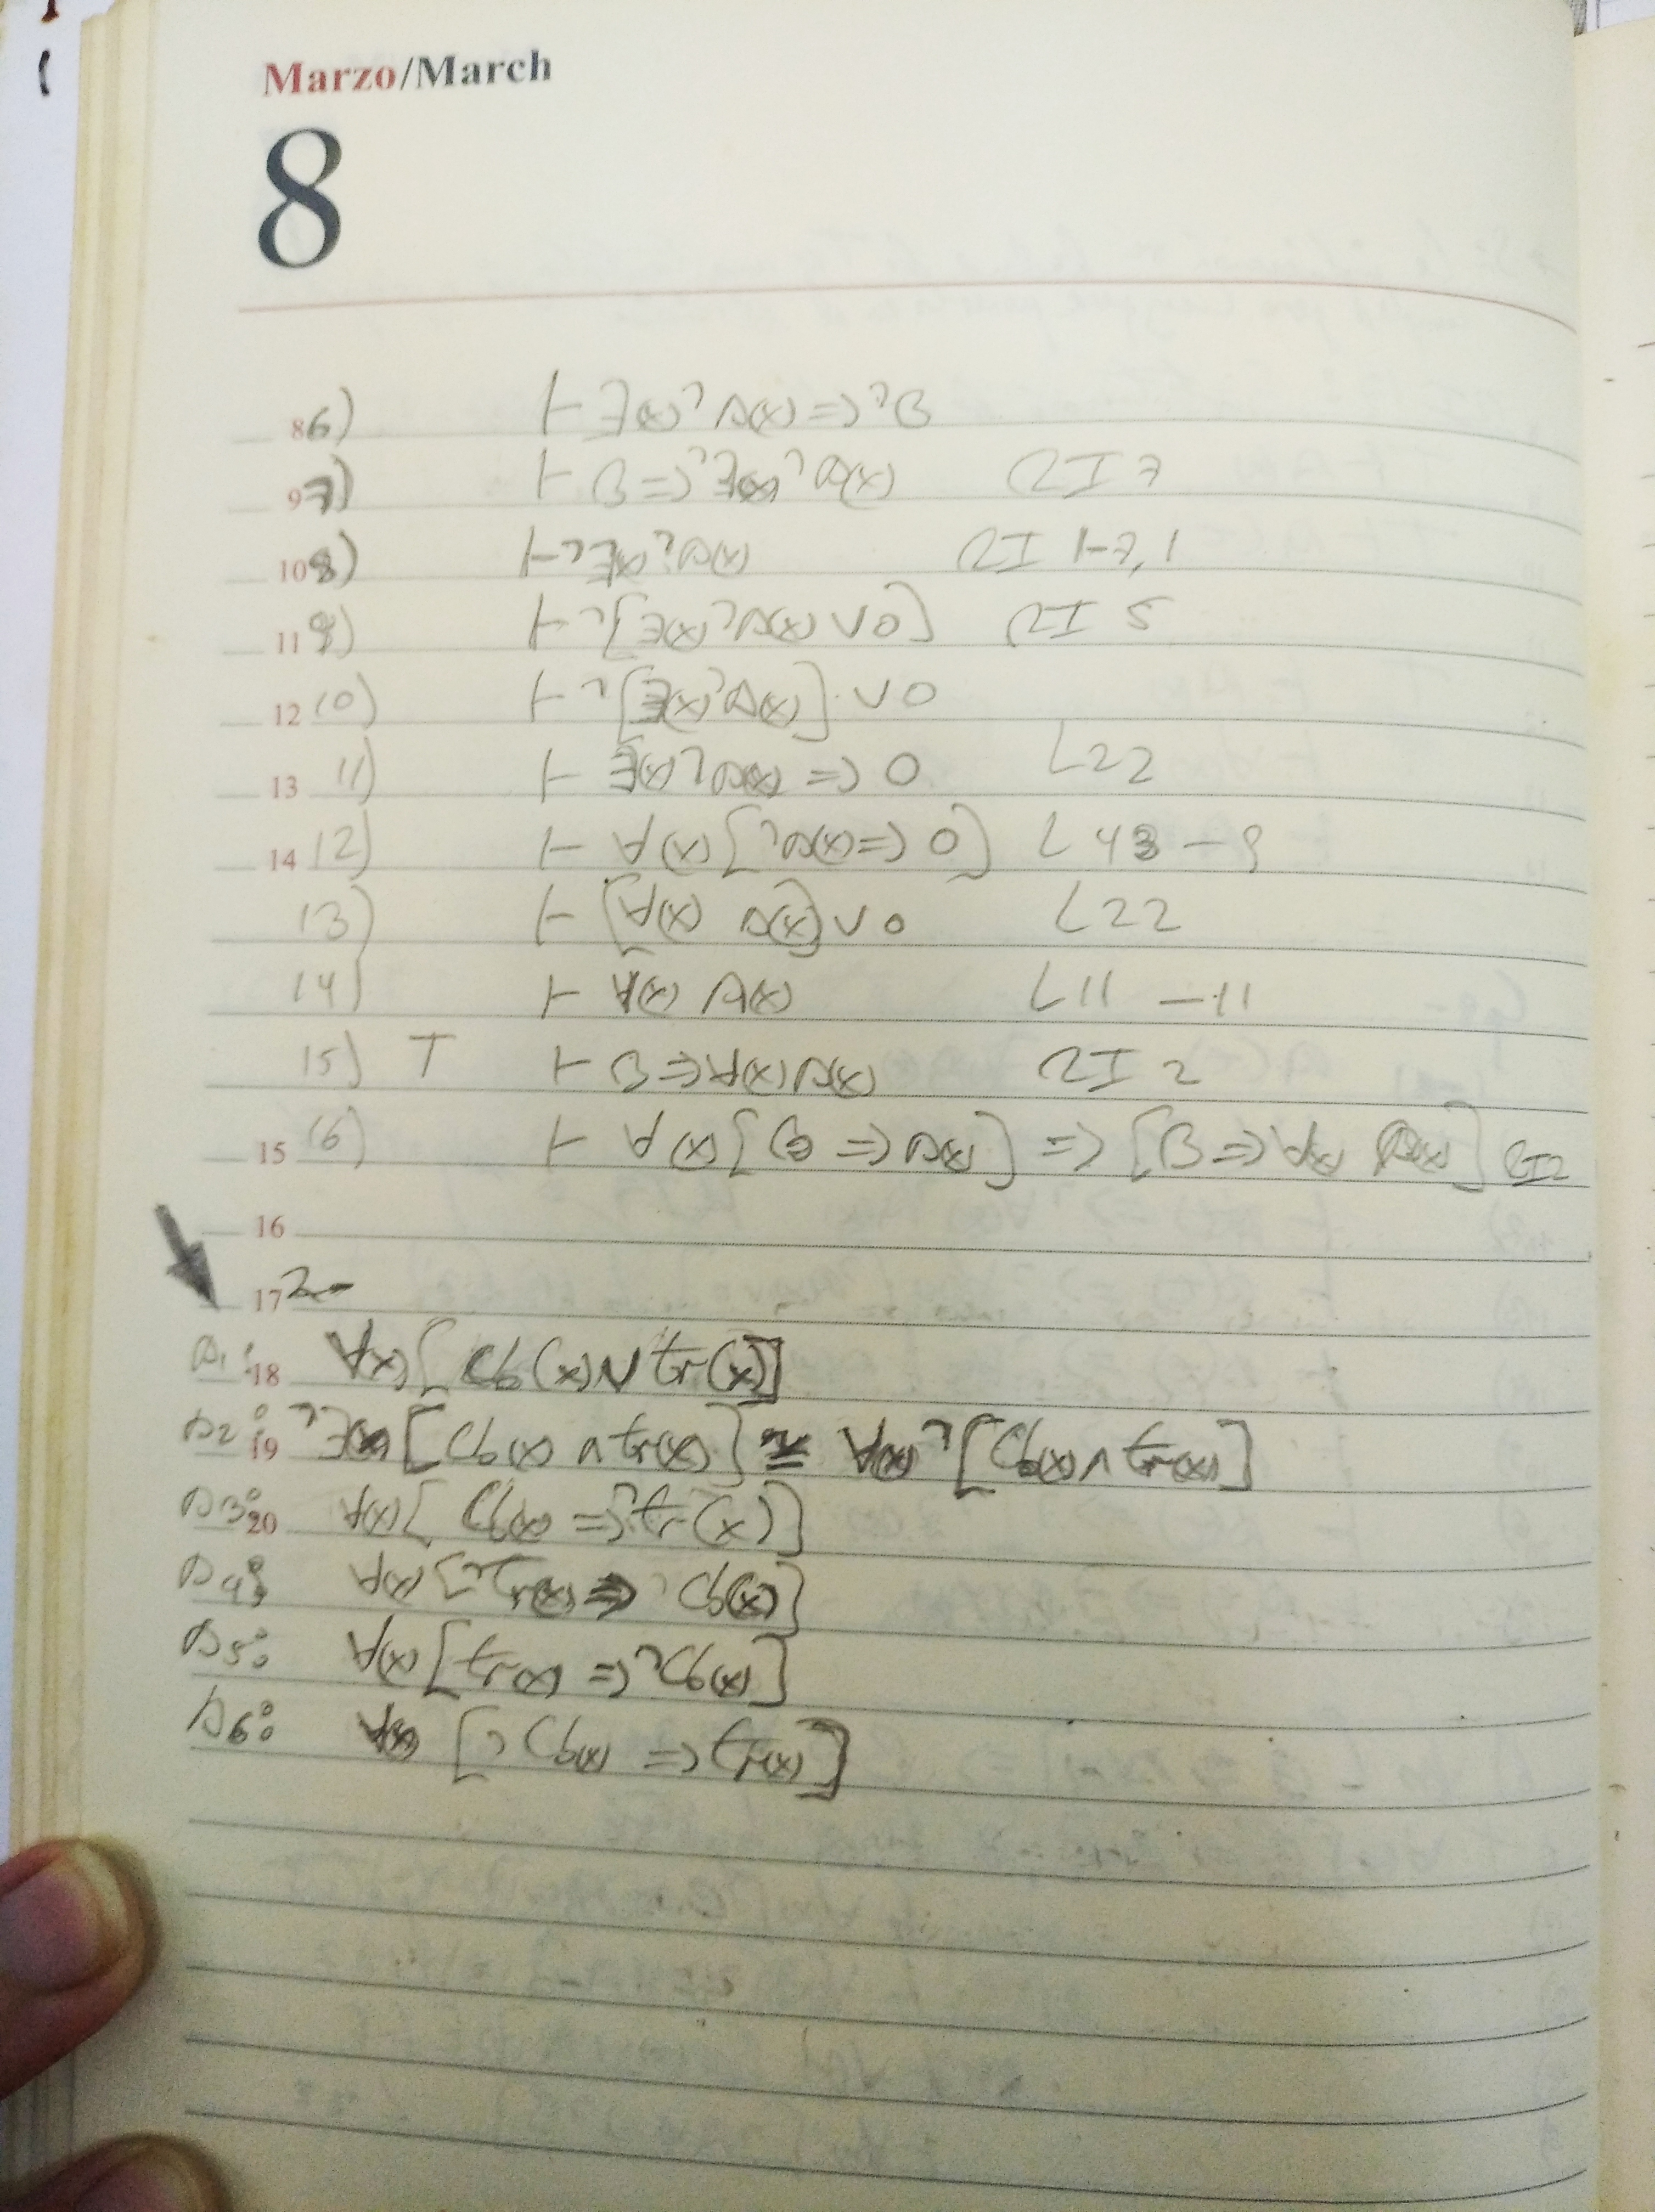 Marzo/March
8
8 6) ⊢ ∃(x) ¬A(x) => ¬B
9 7) ⊢ B => ¬∃(x) ¬A(x) RI 7
10 8) ⊢ ¬∃(x) ¬A(x) RI 1-7, 1
11 9) ⊢ ¬[∃(x) ¬A(x) ∨ 0] RI 5
12 10) ⊢ ¬[∃(x) ¬A(x)] ∨ 0
13 11) ⊢ ∃(x) ¬A(x) => 0 L22
14 12) ⊢ ∀(x) [¬A(x) => 0] L43 - 9
13) ⊢ [∀(x) A(x)] ∨ 0 L22
14) ⊢ ∀(x) A(x) L11 - 11
15) T ⊢ B => ∀(x) A(x) RI 2
15 16) ⊢ ∀(x) [B => A(x)] => [B => ∀(x) A(x)] RI2
16
17 2-
A1: 18 ∀(x) [Cb(x) ∨ tr(x)]
A2: 19 ¬∃(x) [Cb(x) ∧ tr(x)] ≅ ∀(x) ¬[Cb(x) ∧ tr(x)]
A3: 20 ∀(x) [Cb(x) => ¬tr(x)]
A4: ∀(x) [¬Tr(x) => Cb(x)]
A5: ∀(x) [tr(x) => ¬Cb(x)]
A6: ∀(x) [¬Cb(x) => tr(x)]